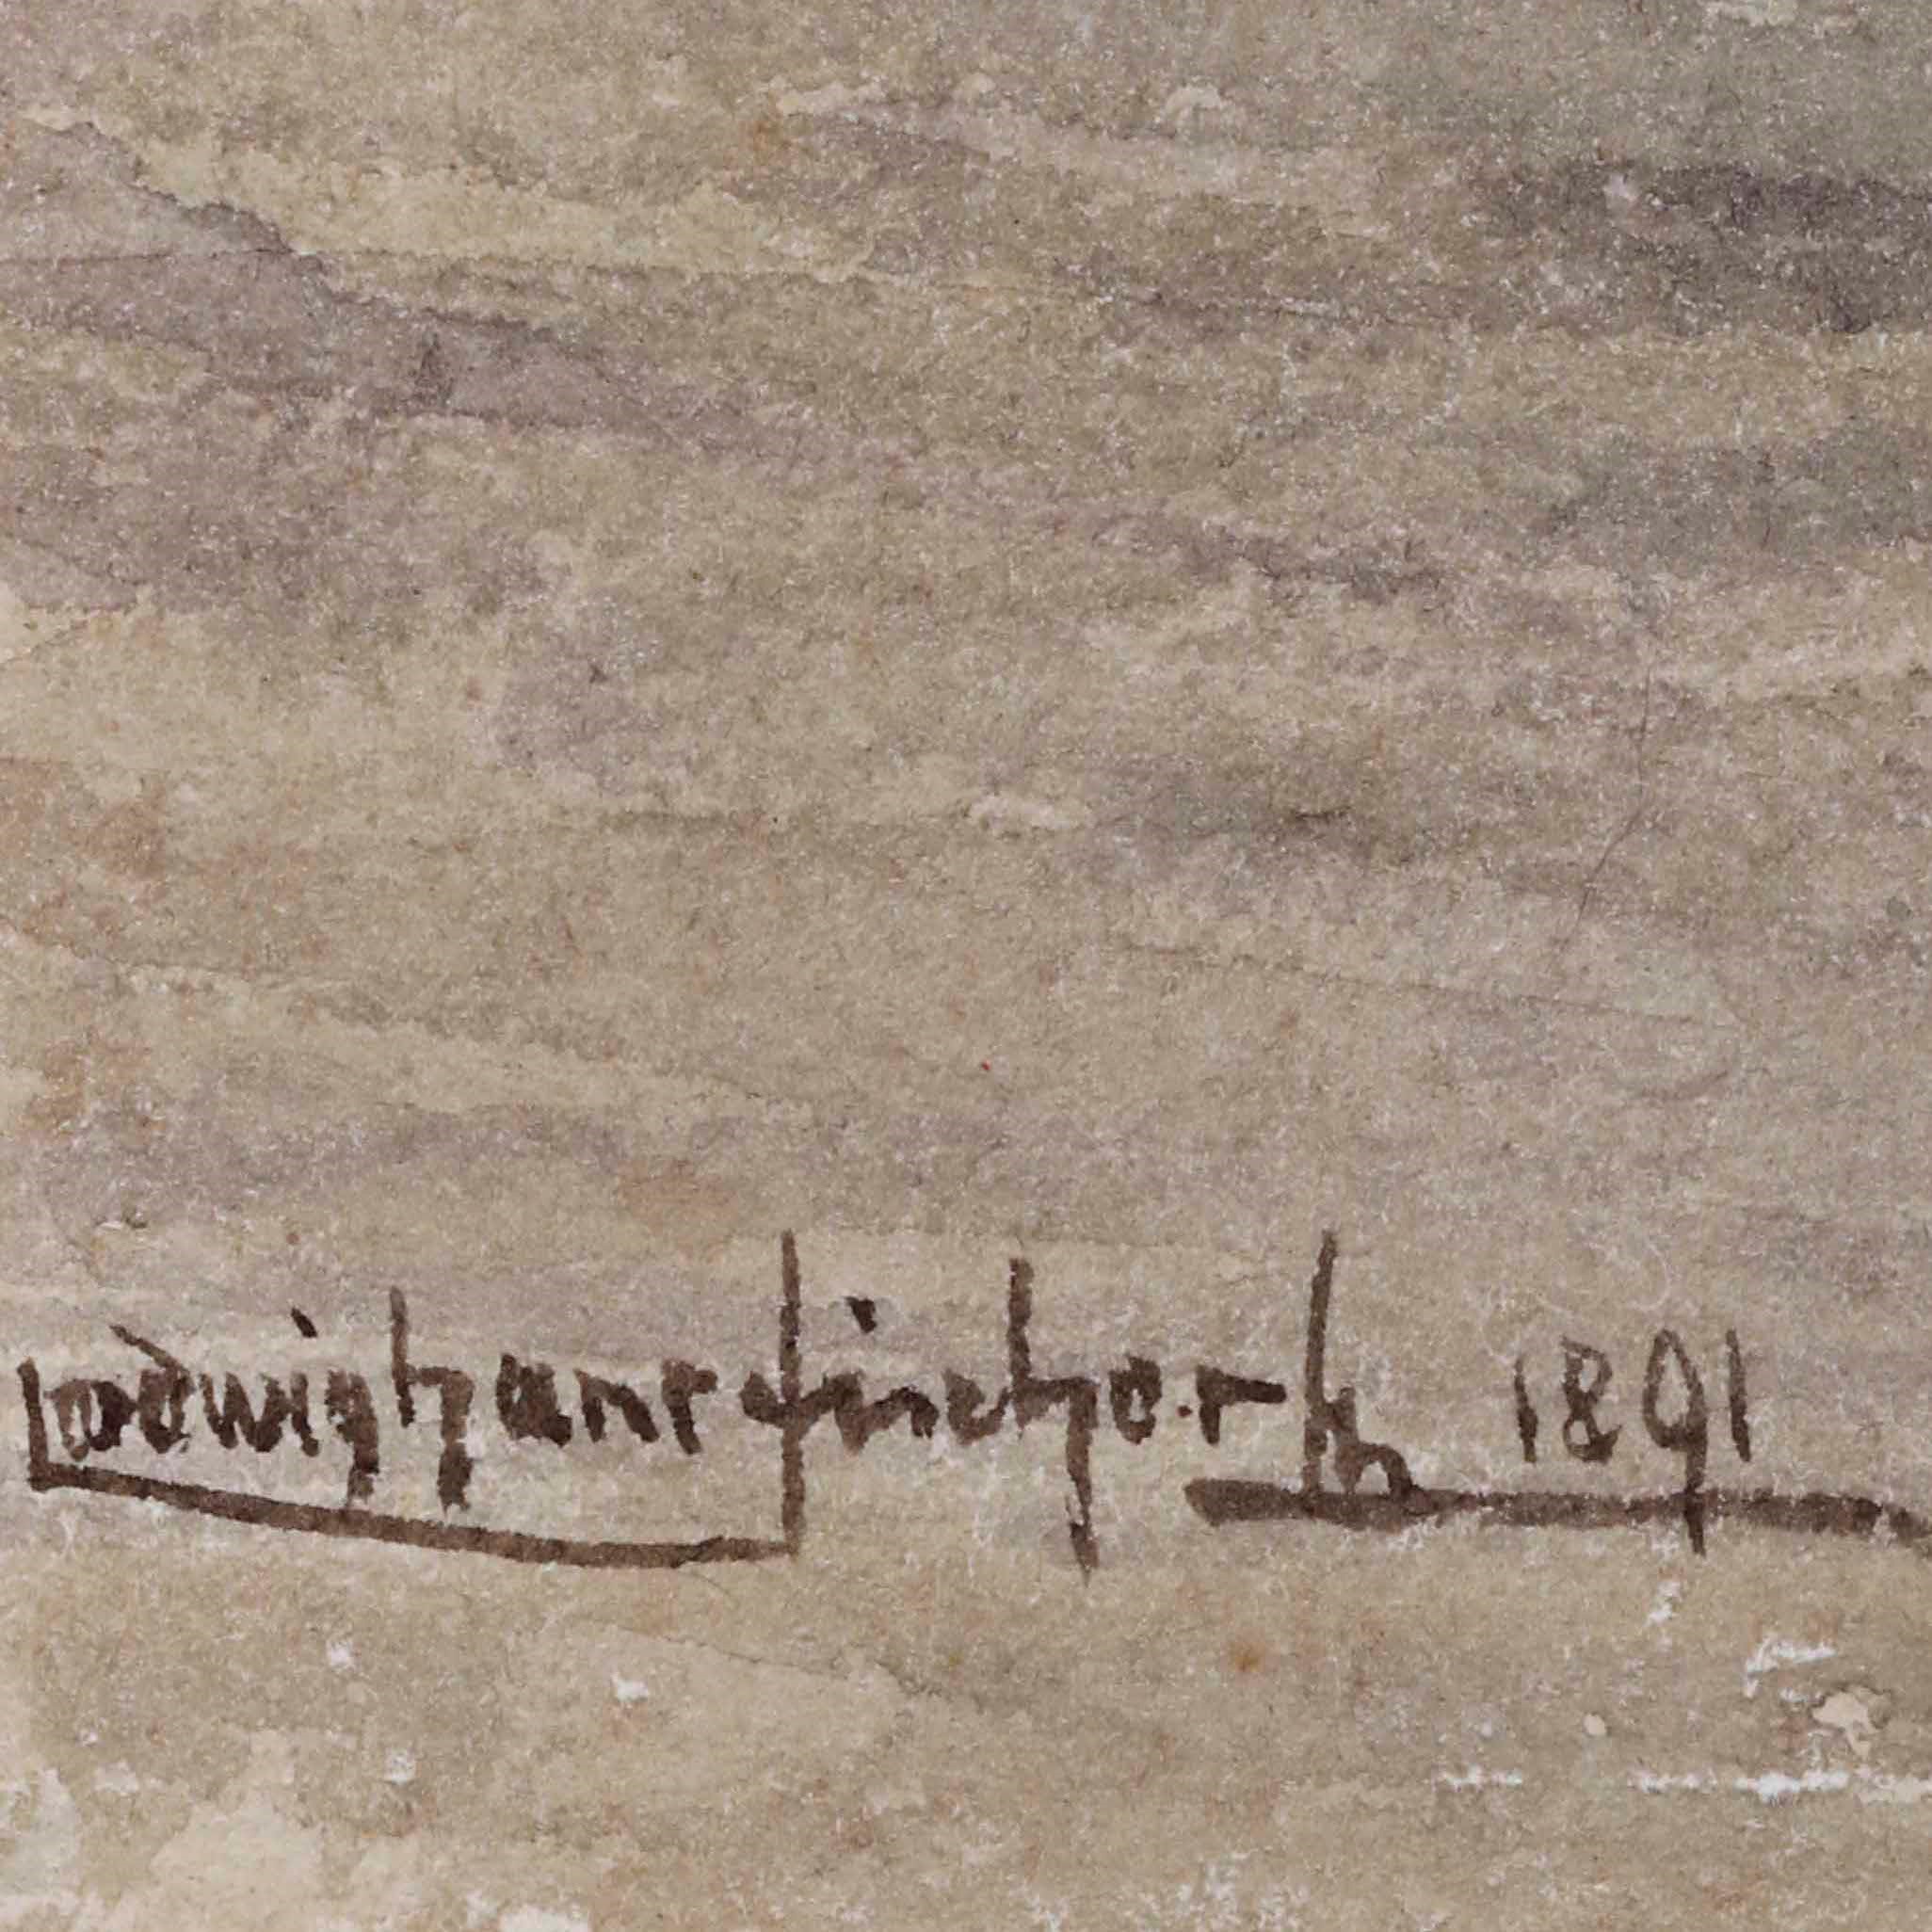 Ludwig hans fischer 1891